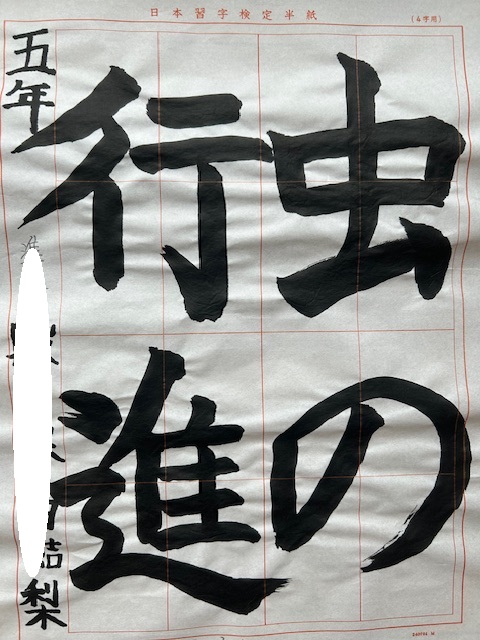 日本習字検定半紙
(4字用)
虫の
行進
五年
梨